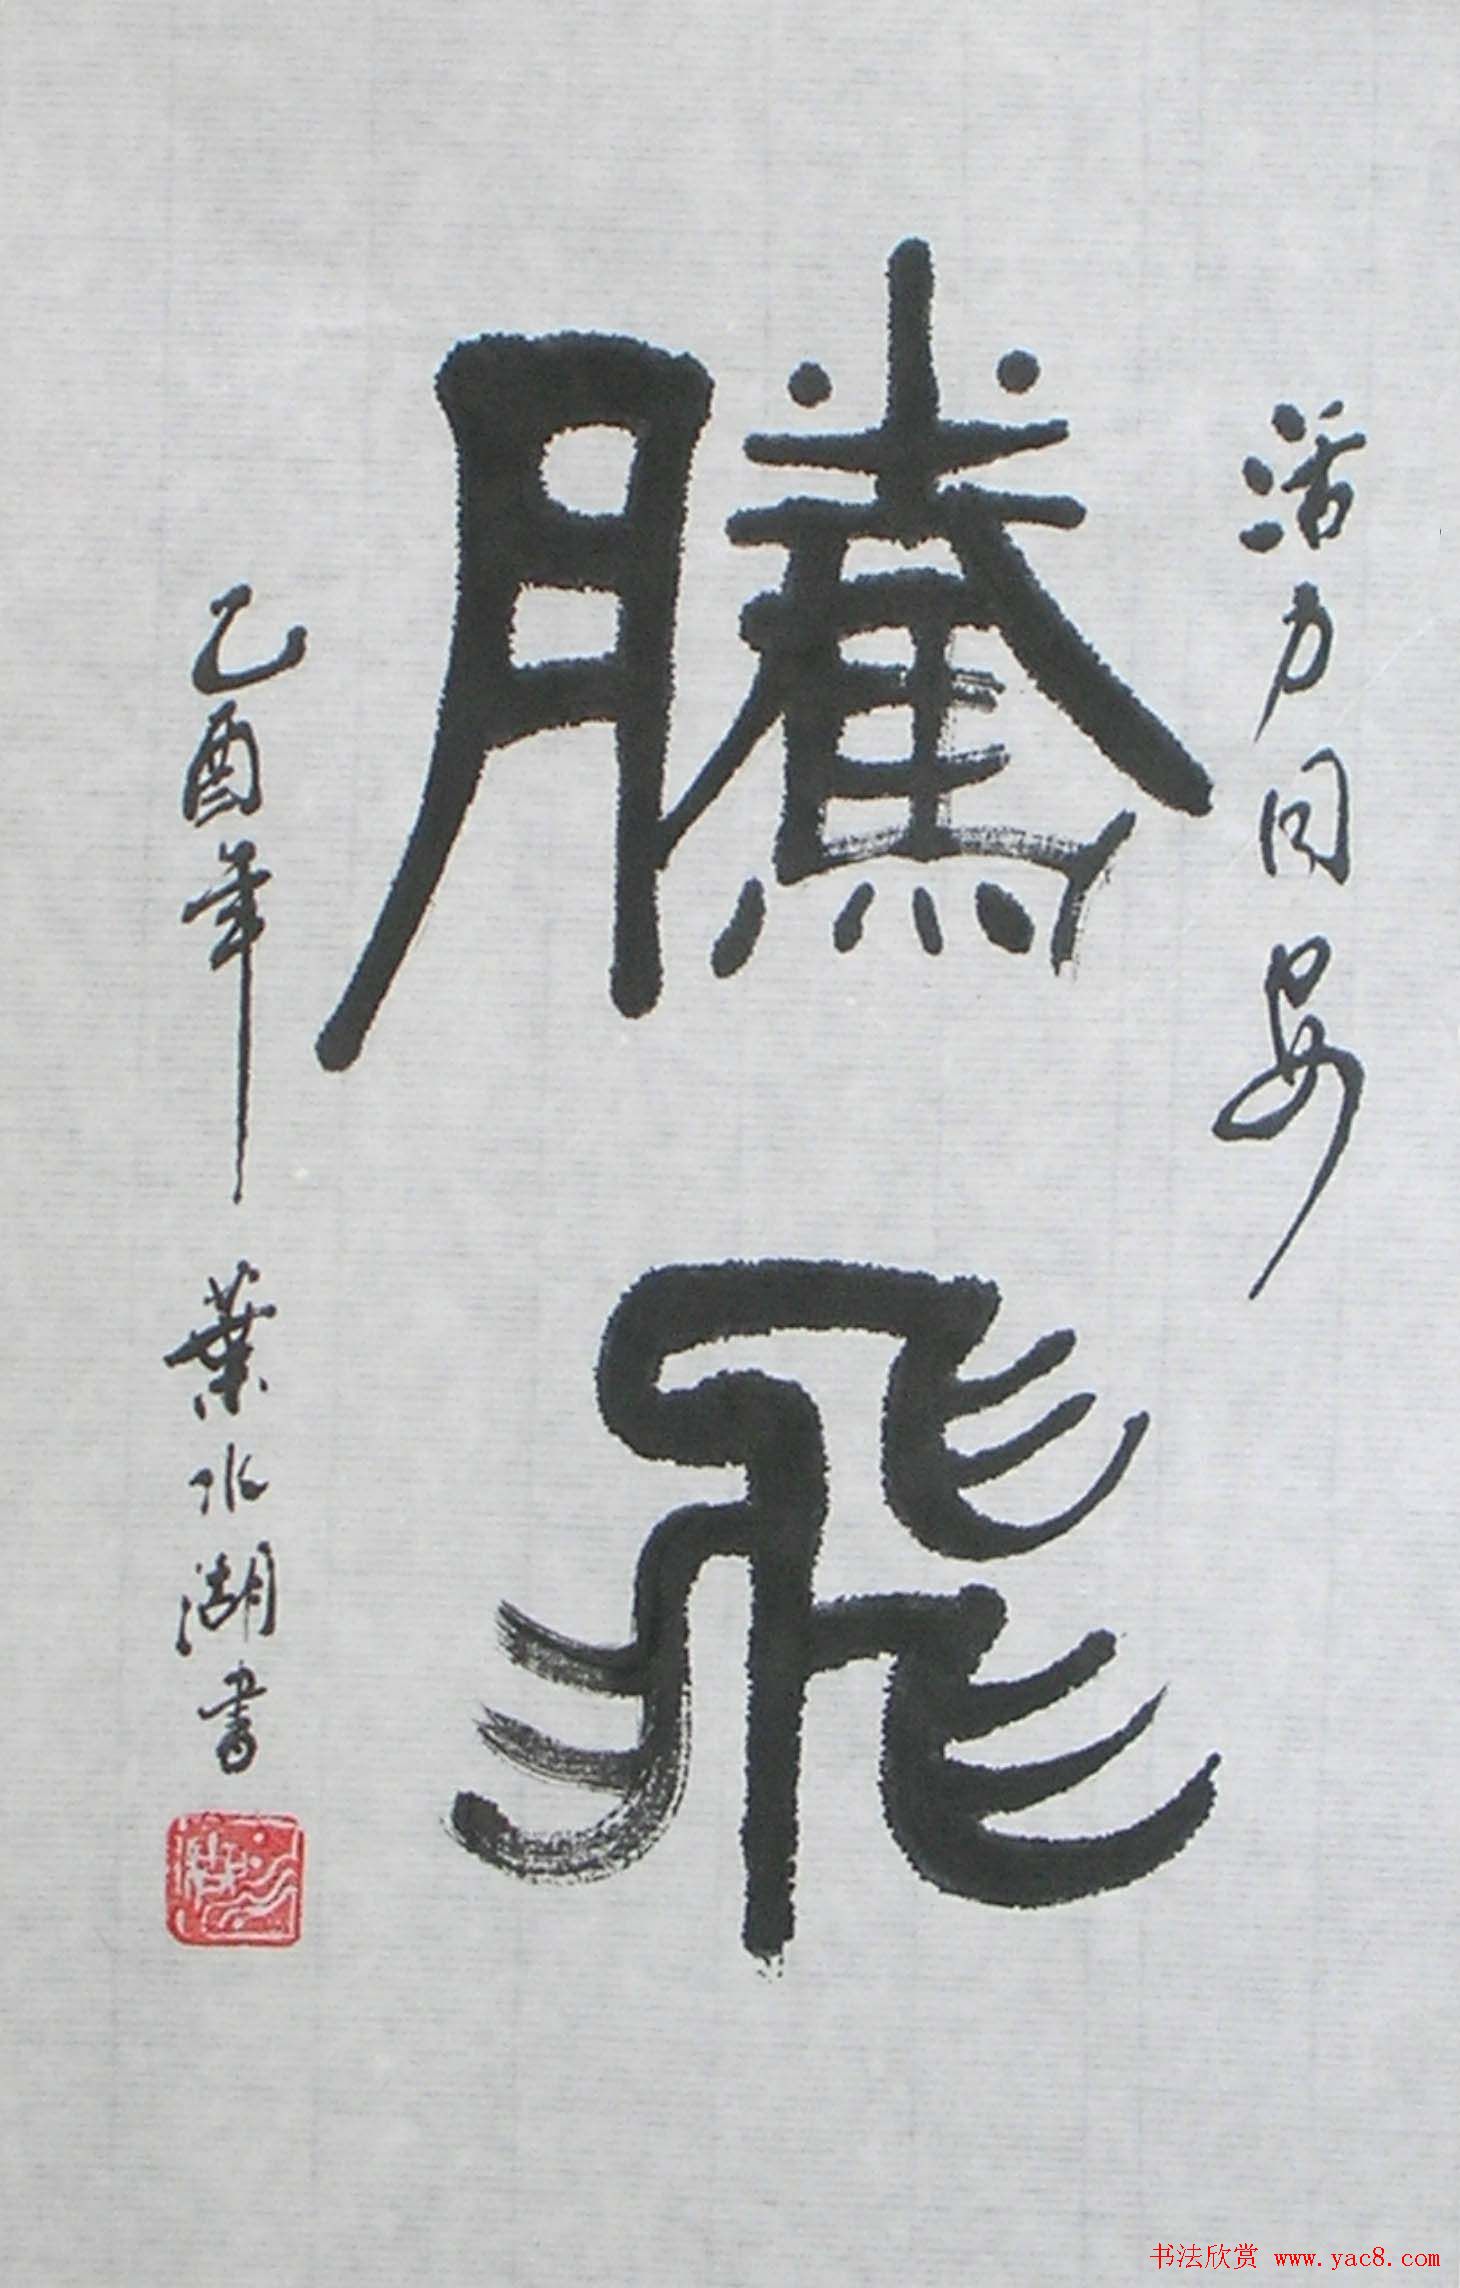 活力同安
騰飛
乙酉年 葉水湖書
书法欣赏 www.yac8.com